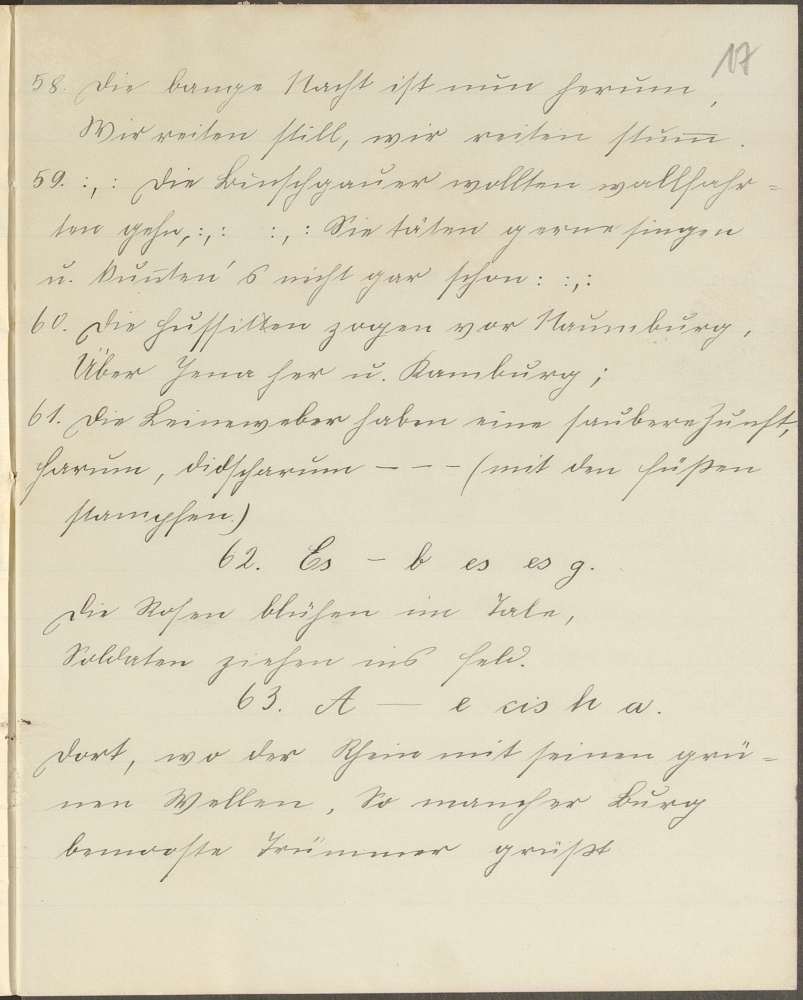 17
58. Die bange Nacht ist nun herum,
Wir reiten still, wir reiten stum̅m̅.
59. :,: Die Binschgauer wollten wallfahr-
ten gehn,:,: :,: Sie täten gerne singen
u. kun̅ten's nicht gar schon: :,:
60. Die Hussitten zogen vor Naumburg,
Über Jena her u. Kamburg;
61. Die Leineweber haben eine saubere Zunft,
Harum, didscharum - - - (mit den Füßen
stampfen.)
62. Es - b es es g.
Die Rosen blühen im Tale,
Soldaten ziehen ins Feld.
63. A — e cis h a.
Dort, wo der Rhein mit seinen grü-
nen Wellen, So mancher Burg
bemooste Trümmer grüßt